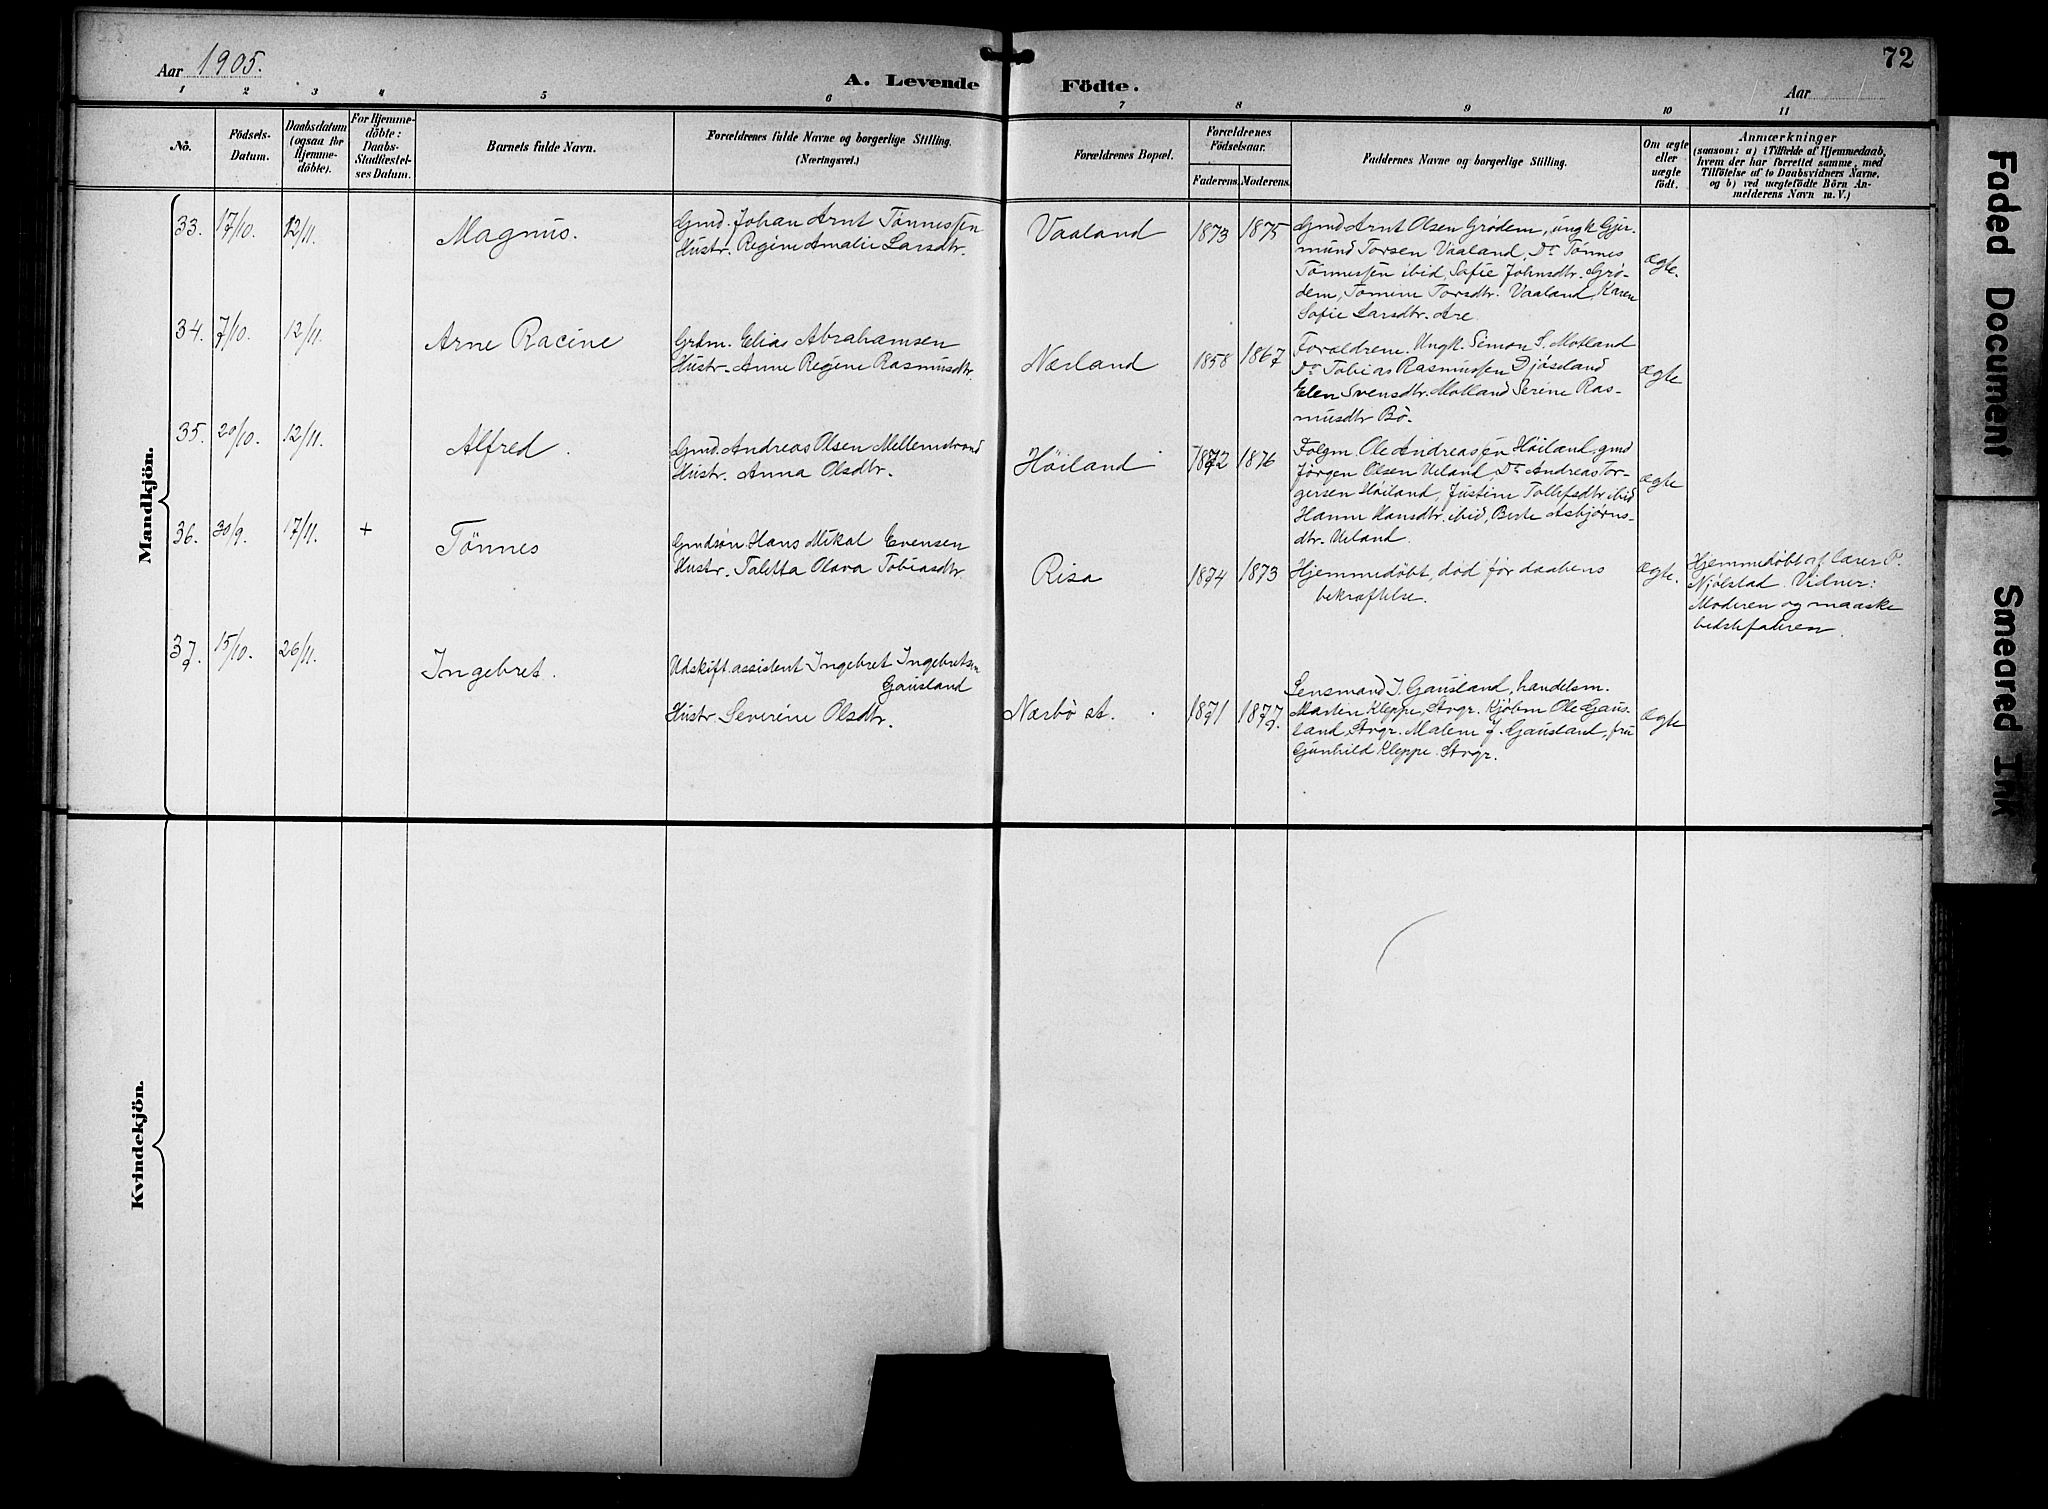 Aar 1905.
A. Levende Födte.
Aar
72
1 2 3 4 5 6 7 8 9 10 11
No.
Födsels-
Datum.
Daabsdatum
(ogsaa for
Hjemme-
döbte).
For Hjemme-
döbte:
Daabs-
Stadfæstel-
ses Datum.
Barnets fulde Navn.
Forældrenes fulde Navne og borgerlige Stilling.
(Næringsvei.)
Forældrenes Bopæl.
Forældrenes
Födselsaar.
Faderens. Moderens.
Faddernes Navne og borgerlige Stilling.
Om ægte
eller
uægte
födt.
Anmærkninger
(saasom: a) i Tilfælde af Hjemmedaab,
hvem der har forrettet samme, med
Tilföielse af to Daabsvidners Navne,
og b) ved uægtefödte Börn An-
melderens Navn m. V.)
Mandkjön.
33. 17/10. 12/11.
Magnus.
Gmd. Johan Arnt Tønnessen
Hustr. Regine Amalie Larsdtr.
Vaaland
1873 1875
Gmd Arnt Olsen Grødem, ungk Gjer-
mund Torsen Vaaland, Do Tønnes
Tønnessen ibid, Sofie Johnsdtr. Grø-
dem, Tomine Torsdtr. Vaaland, Karen
Sofie Larsdtr. Are
ægte.
34. 7/10. 12/11.
Arne Racine
Grdm. Elias Abrahamsen
Hustr. Anne Regine Rasmusdtr.
Nærland
1858 1867
Forældrene. Ungk. Simon S. Motland
Do Tobias Rasmussen Djøseland
Elen Svensdtr. Motland Serine Ras-
musdtr Bø.
ægte
35. 20/10. 12/11.
Alfred.
Gmd. Andreas Olsen Mellemstrand
Hustr. Anna Olsdtr.
Høiland
1872 1876
Folgm. Ole Andreassen Høiland, gmd
Jørgen Olsen Ueland, Do Andreas Tor-
gersen Høiland, Justine Tollefsdtr ibid
Hanne Hansdtr. ibid, Berte Asbjørns-
dtr. Ueland.
ægte
36. 30/9. 17/11. +
Tønnes
Gmdsøn Hans Mikal Evensen
Hustr. Taletta Olava Tobiasdtr.
Risa
1874 1873
Hjemmedøbt, død før daabens
bekræftelse.
ægte.
Hjemmedøbt af lærer P.
Njølstad. Vidner:
Moderen og maaske
bedstefaderen.
37. 15/10. 26/11.
Ingebret.
Udskift.assistent Ingebret Ingebretsen
Gausland
Hustr. Severine Olsdtr.
Nærbø st.
1871 1877
Lensmand I. Gausland, handelsm.
Martin Kleppe, Stvgr. Kjøbm Ole Gaus-
land, Stvgr. Malene J. Gausland, fru
Gunhild Kleppe Stvgr.
ægte
Kvindekjön.
Faded Document
Smeared Ink